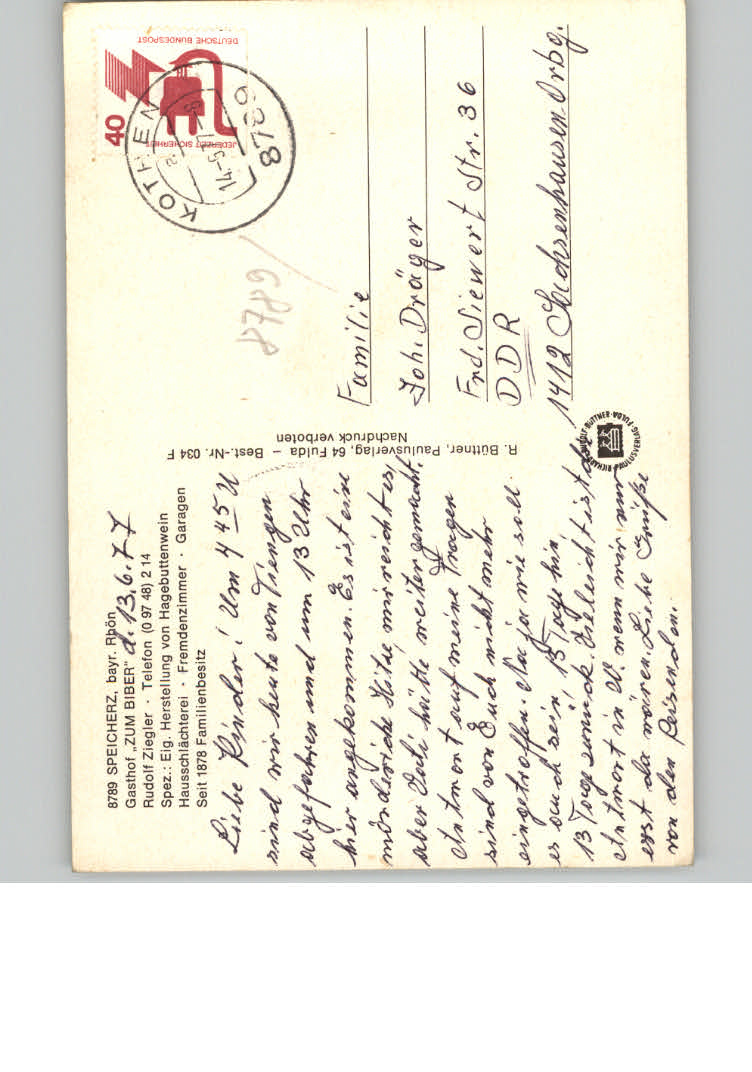 8789 SPEICHERZ, bayr. Rhön
Gasthof „ZUM BIBER" d. 13.6.77
Rudolf Ziegler · Telefon (0 97 48) 2 14
Spez.: Eig. Herstellung von Hagebuttenwein
Hausschlächterei · Fremdenzimmer · Garagen
Seit 1878 Familienbesitz
Liebe Kinder! Um 4 45 U
sind wir heute von Tiengen
abgefahren und um 13 Uhr
hier angekommen. Es ist eine
mörderische Hitze, mir reicht es,
aber hätte weiter gemacht.
Antwort auf meine Fragen
sind von Euch nicht mehr
eingetroffen. Na ja wie soll
es auch sein, 15 Tage hin,
13 Tage zurück. Vielleicht ist die
Antwort in W. wenn wir nur
erst da wären. Liebe Grüße
von den Reisenden.
R. Büttner, Paulusverlag, 64 Fulda – Best.-Nr. 034 F
Nachdruck verboten
RICHARD RUDOLF BÜTTNER · PAULUSVERLAG · FULDA
DEUTSCHE BUNDESPOST
JEDERZEIT SICHERHEIT
40
KOTHEN
14.-5.77-8
8789
8789
Familie
Joh. Dräger
Frd. Siewert Str. 36
DDR
1412 Sachsenhausen Orbg.